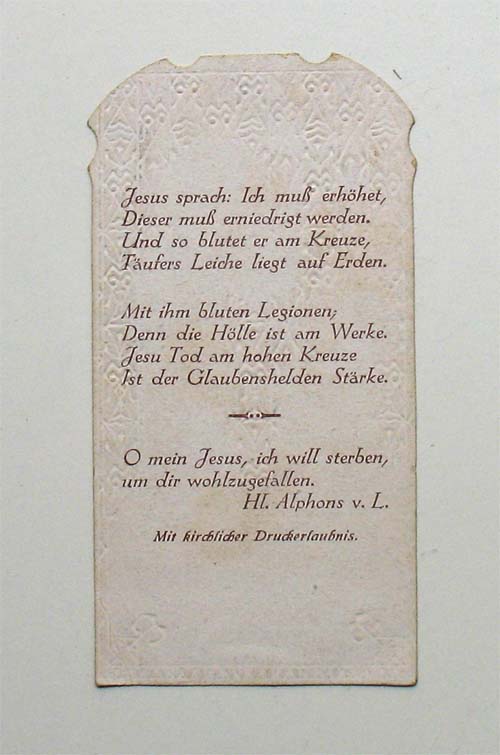 Jesus sprach: Ich muß erhöhet,
Dieser muß erniedrigt werden.
Und so blutet er am Kreuze,
Täufers Leiche liegt auf Erden.
Mit ihm bluten Legionen;
Denn die Hölle ist am Werke.
Jesu Tod am hohen Kreuze
Ist der Glaubenshelden Stärke.
O mein Jesus, ich will sterben,
um dir wohlzugefallen.
Hl. Alphons v. L.
Mit kirchlicher Druckerlaubnis.